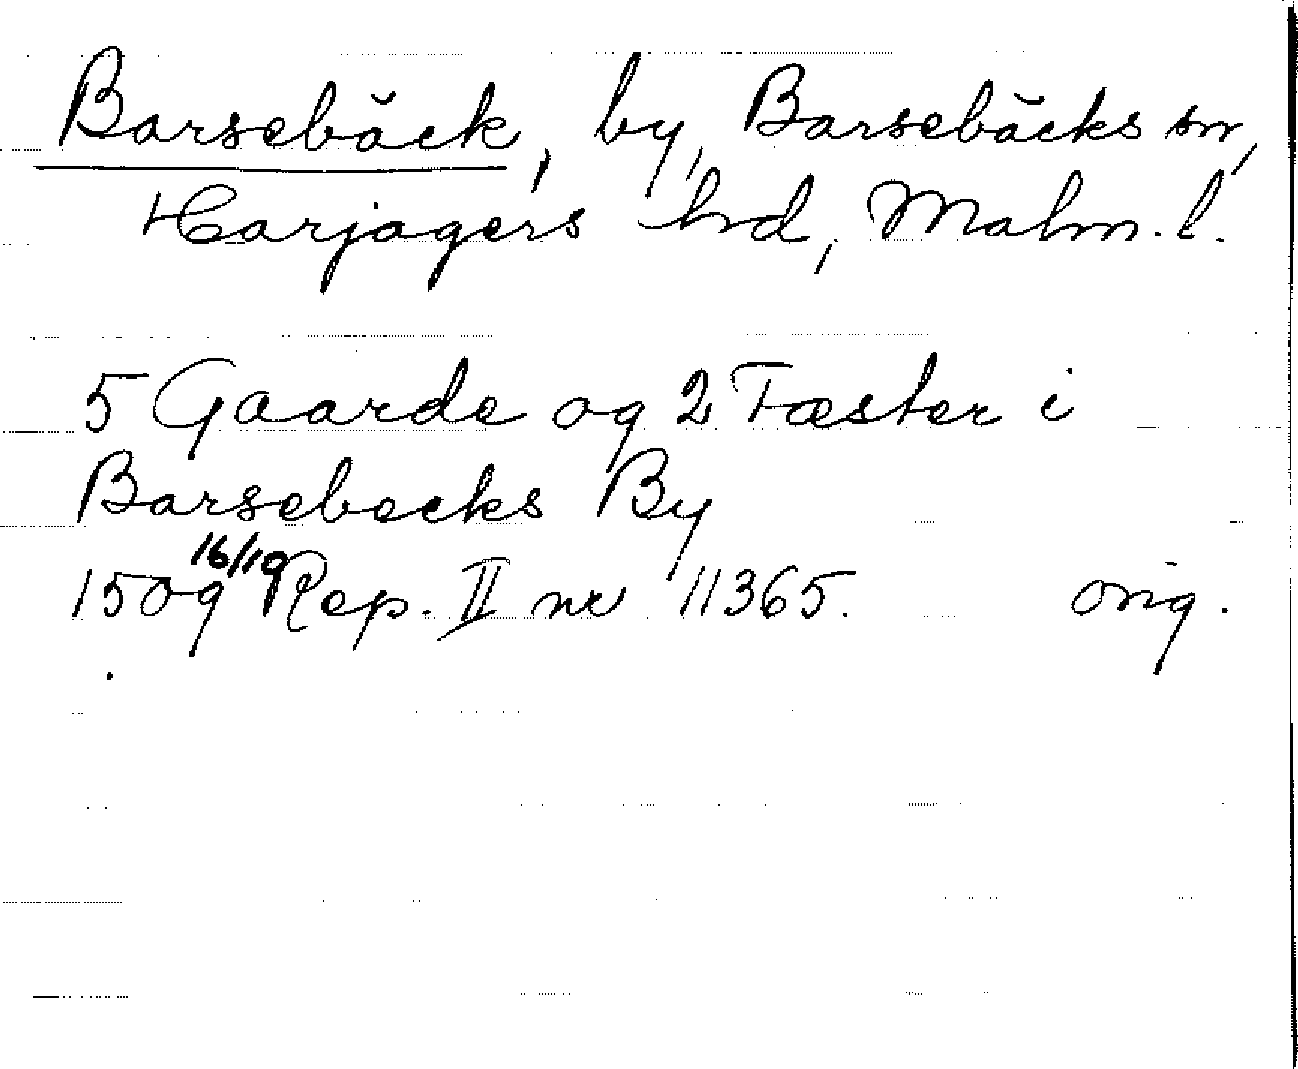 Barsebäck, by, Barsebäcks sn,
Harjagers hrd, Malm. l.
5 Gaarde og 2 Fæster i
Barsebecks By
1509 16/10 Rep. II nr 11365. orig.